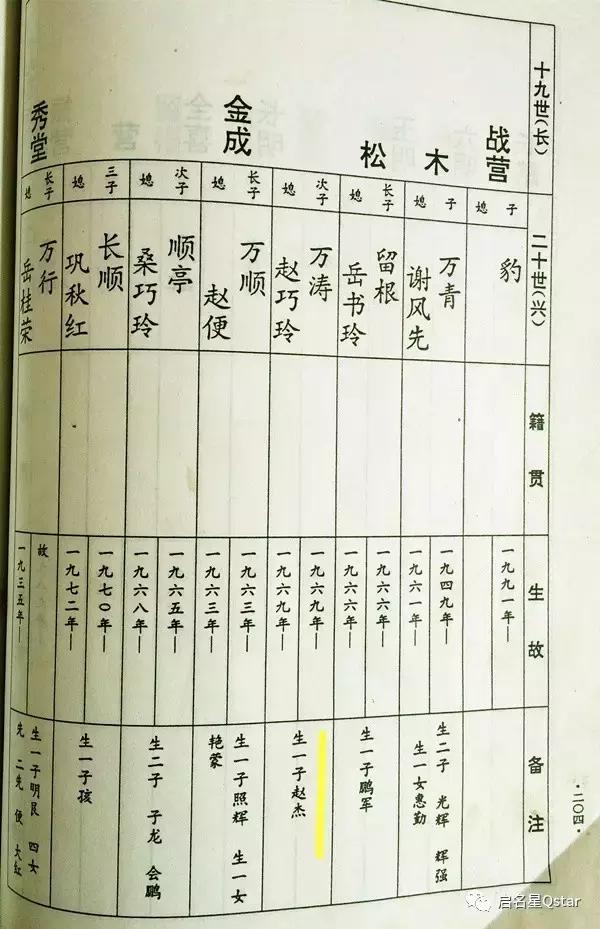 十九世(长)
战营
木
松
金成
秀堂
子
媳
子
媳
长子
媳
次子
媳
长子
媳
次子
媳
三子
媳
长子
媳
二十世(兴)
豹
万青
谢风先
留根
岳书玲
万涛
赵巧玲
万顺
赵便
顺亭
桑巧玲
长顺
巩秋红
万行
岳桂荣
籍贯
生故
一九九一年—
一九四九年—
一九六一年—
一九六六年—
一九六六年—
一九六九年—
一九六九年—
一九六三年—
一九六三年—
一九六五年—
一九六八年—
一九七〇年—
一九七二年—
故
一九三五年—
备注
生二子 光辉 辉强
生一女惠勤
生一子鹏军
生一子赵杰
生一子照辉 生一女
艳蒙
生二子 子龙 会鹏
生一子孩
生一子明艮 四女
先 二先 便 大红
·二〇四·
启名星Qstar